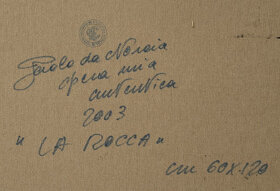 Paolo da Norcia
opera mia
autentica
2003
"LA ROCCA"
cm 60X120